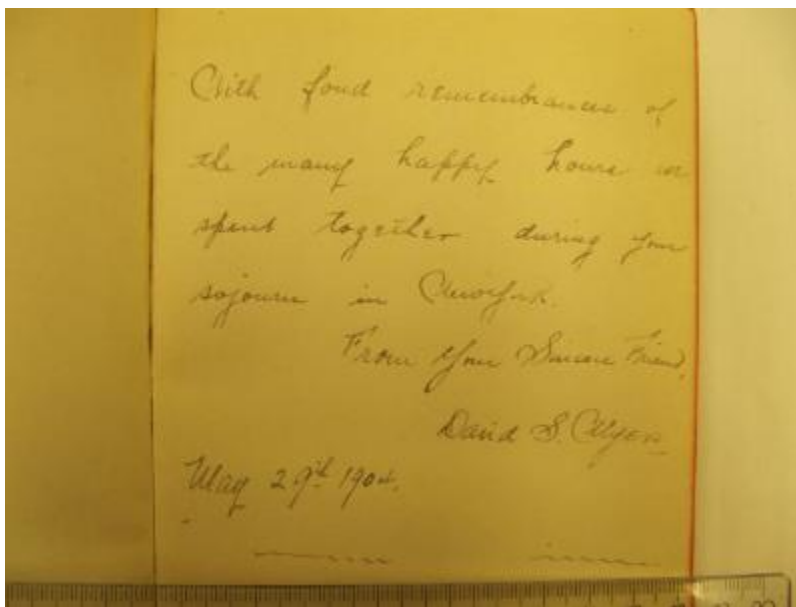 With fond remembrances of
the many happy hours we
spent together during your
sojourn in New York.
From your Sincere Friend,
David S.
May 29th 1904.